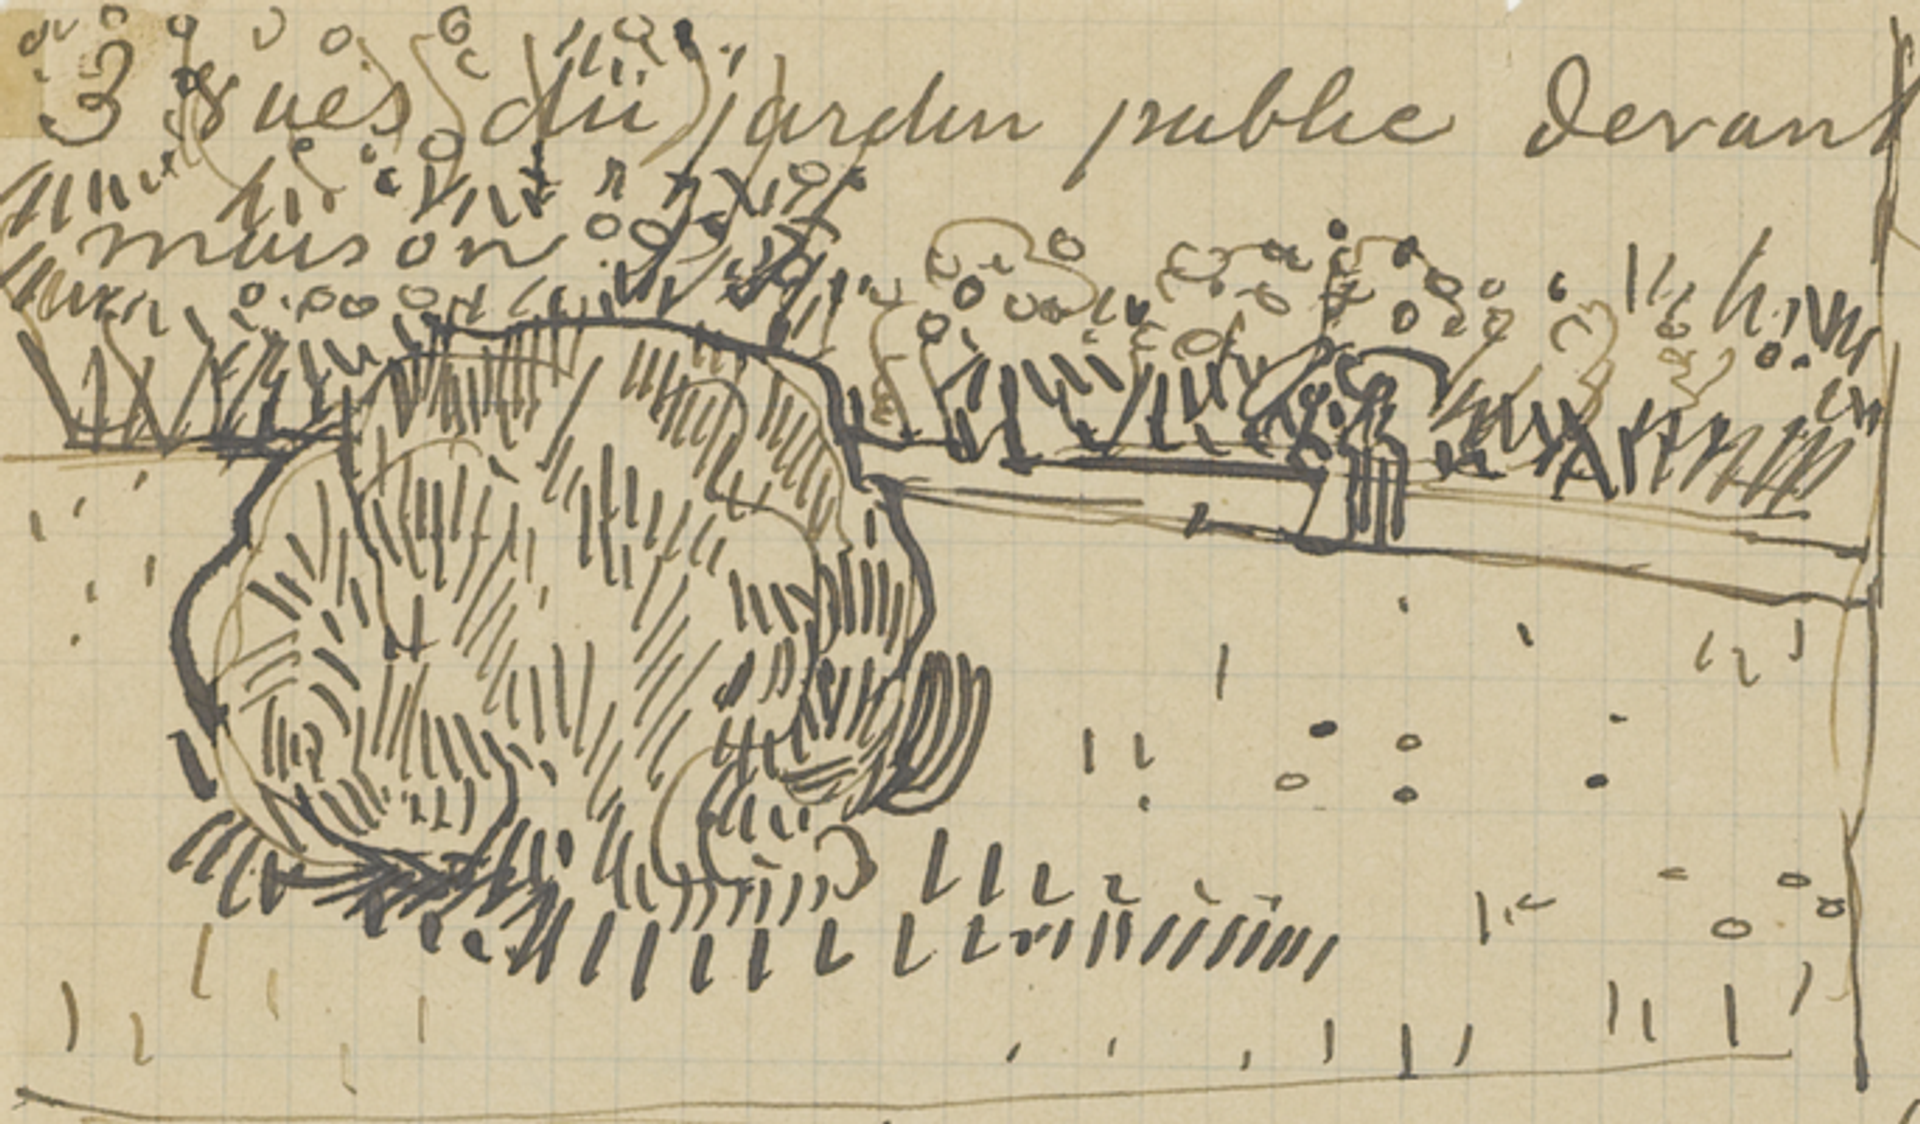 3 vues du jardin public devant
maison